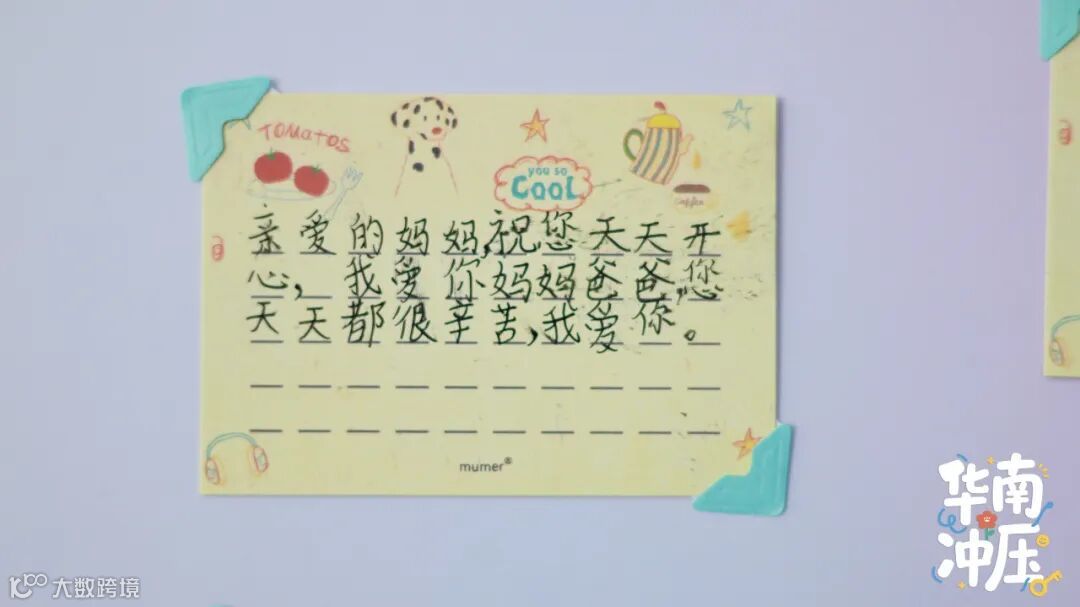 TOMATOS
you so
COOL
Coffee
亲爱的妈妈,祝您天天开
心,我爱你妈妈爸爸,您
天天都很辛苦,我爱你。
mumer®
华南
冲压
大数跨境